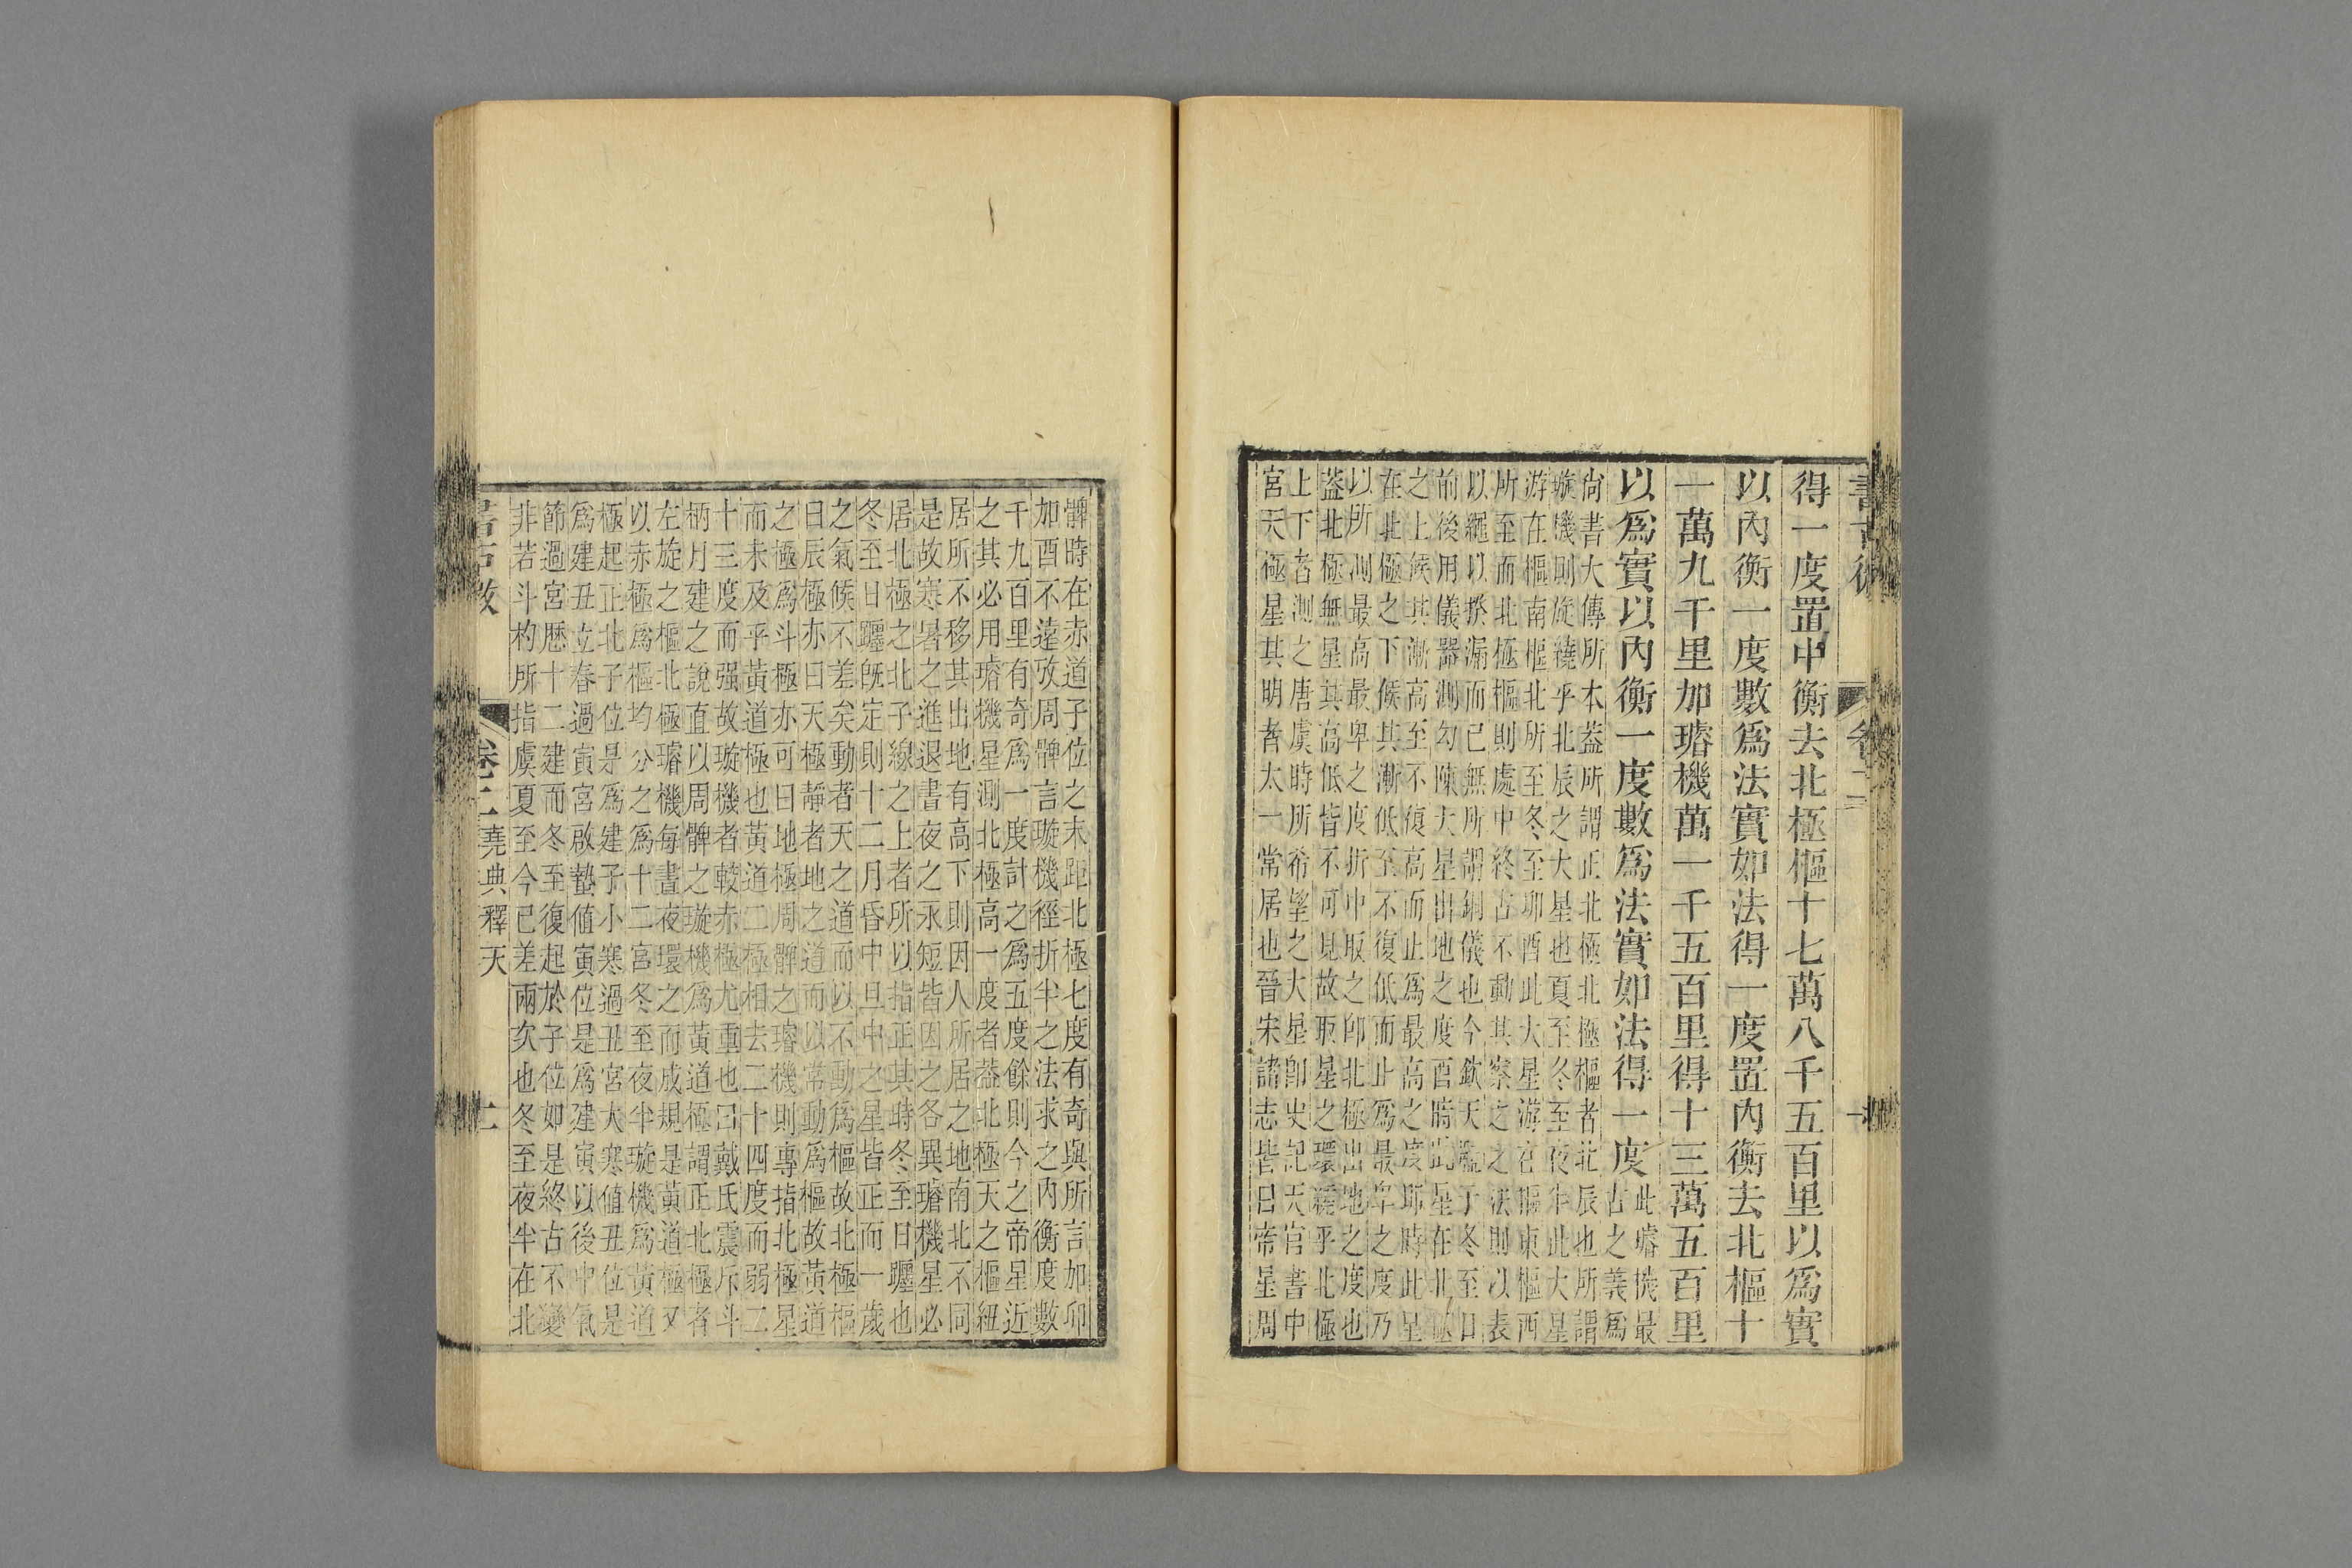 得一度置中衡去北極樞十七萬八千五百里以爲實
以內衡一度數爲法實如法得一度置內衡去北樞十
一萬九千里加璿機萬一千五百里得十三萬五百里
以爲實以內衡一度數爲法實如法得一度此璿機最
古之義爲
尚書大傳所本葢所謂正北極北極樞者北辰也所謂
璇機則旋繞乎北辰之大星也夏至冬至夜半此大星
游在樞南樞北所至冬至卯酉此大星游在樞東樞西
所至而北極樞則處中終古不動其察之之法則以表
以繩以揆漏而已無所謂銅儀也今欽天監于冬至日
前後用儀器測勾陳大星出地之度酉時此星在北極
之上候其漸高至不復高而止爲最高之度卯時此星
在北極之下候其漸低至不復低而止爲最卑之度乃
以所測最高最卑之度折中取之卽北極出地之度也
葢北極無星其高低皆不可見故取星之環繞乎北極
上下者測之唐虞時所希望之大星卽史記天官書中
宮天極星其明者太一常居也晉宋諸志皆曰帝星周
髀時在赤道子位之末距北極七度有奇與所言加卯
加酉不遠攷周髀言璇機徑折半之法求之內衡度數
千九百里有奇爲一度計之爲五度餘則今之帝星近
之其必用璿機星測北極高一度者葢北極天之樞紐
居所不移其出地有高下則因人所居之地南北不同
是故寒暑之進退晝夜之永短皆因之各異璿機星必
居北極之北子線之上者所以指正其時冬至日躔也
冬至日躔旣定則十二月昏中旦中之星皆正而一歲
之氣候不差矣動者天之道而以不動爲樞故北極樞
曰辰極亦曰天極靜者地之道而以常動爲樞故黃道
之極爲斗極亦可曰地極周髀之璿機則專指北極星
而未及乎黃道極也黃道二極相去二十四度而弱二
十三度而强故璇機者較赤極尤重也曰戴氏震斥斗
柄月建之說直以周髀之璇機爲黃道極謂正北極者
左旋之樞北極璿機每晝夜環之而成規是黃道極又
以赤極爲樞均分之爲十二宮冬至夜半璇機爲黃道
極起正北子位是爲建子小寒過丑宮大寒值丑位是
爲建丑立春過寅宮啟蟄值寅位是爲建寅以後中氣
節過宮歷十二建而冬至復起於子位如是終古不變
非若斗杓所指虞夏至今已差兩次也冬至夜半在北
卷二堯典釋天